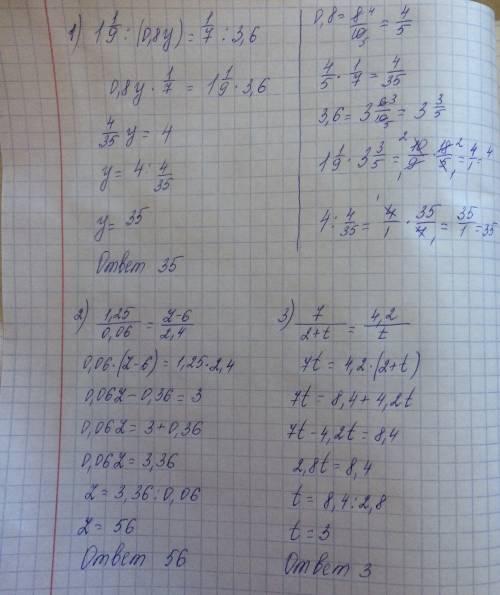 1) 1 1/9 : (0,8y) = 1/7 : 3,6
0,8y · 1/7 = 1 1/9 · 3,6
4/35 y = 4
y = 4 : 4/35
y = 35
Ответ 35
0,8 = 8/10 = 4/5
4/5 · 1/7 = 4/35
3,6 = 3 6/10 = 3 3/5
1 1/9 · 3 3/5 = 10/9 · 18/5 = 4/1 = 4
4 : 4/35 = 4/1 · 35/4 = 35/1 = 35
2) 1,25/0,06 = z-6/2,4
0,06 · (z-6) = 1,25 · 2,4
0,06z - 0,36 = 3
0,06z = 3 + 0,36
0,06z = 3,36
z = 3,36 : 0,06
z = 56
Ответ 56
3) 7/2+t = 4,2/t
7t = 4,2 · (2+t)
7t = 8,4 + 4,2t
7t - 4,2t = 8,4
2,8t = 8,4
t = 8,4 : 2,8
t = 3
Ответ 3